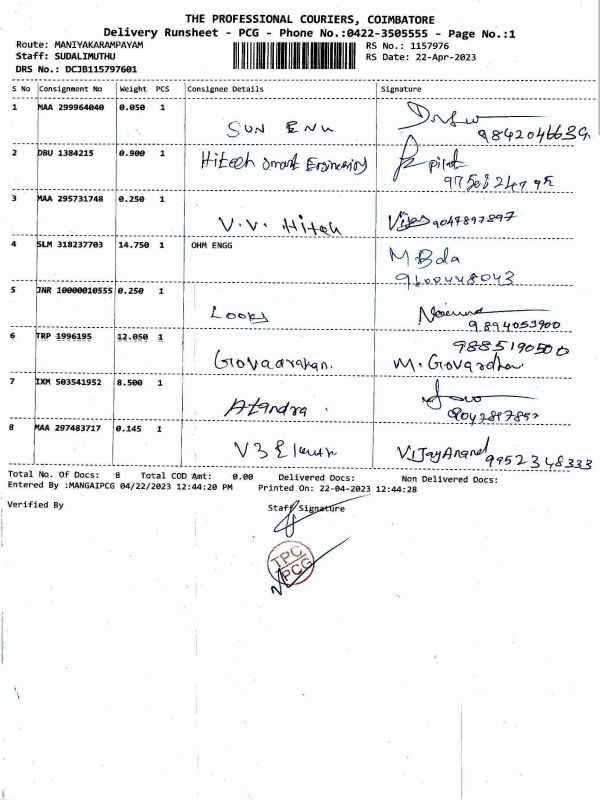 THE PROFESSIONAL COURIERS, COIMBATORE
Delivery Runsheet - PCG - Phone No.:0422-3505555 - Page No.:1
Route: MANIYAKARAMPAYAM RS No.: 1157976
Staff: SUDALIMUTHU RS Date: 22-Apr-2023
DRS No.: DCJB115797601
S No Consignment No Weight PCS Consignee Details Signature
1 MAA 299964040 0.050 1
SUN ENU 9842046639
2 DBU 1384215 0.900 1 Hitech Smart Engineering pilot
3 MAA 295731748 0.250 1
V.V. Hitech Vijay 9047897897
4 SLM 318237703 14.750 1 OHM ENGG M. Bda
9600448043
5 JNR 10000010555 0.250 1
Loops 9894053900
6 TRP 1996195 12.050 1 9885190500
M. Govardhan
7 IXM 503541952 8.500 1
Atandra
8 MAA 297483717 0.145 1
V3 VIJayAnand 9952348333
Total No. Of Docs: 8 Total COD Amt: 0.00 Delivered Docs: Non Delivered Docs:
Entered By :MANGAIPCG 04/22/2023 12:44:20 PM Printed On: 22-04-2023 12:44:28
Verified By Staff Signature
TPC
PCG